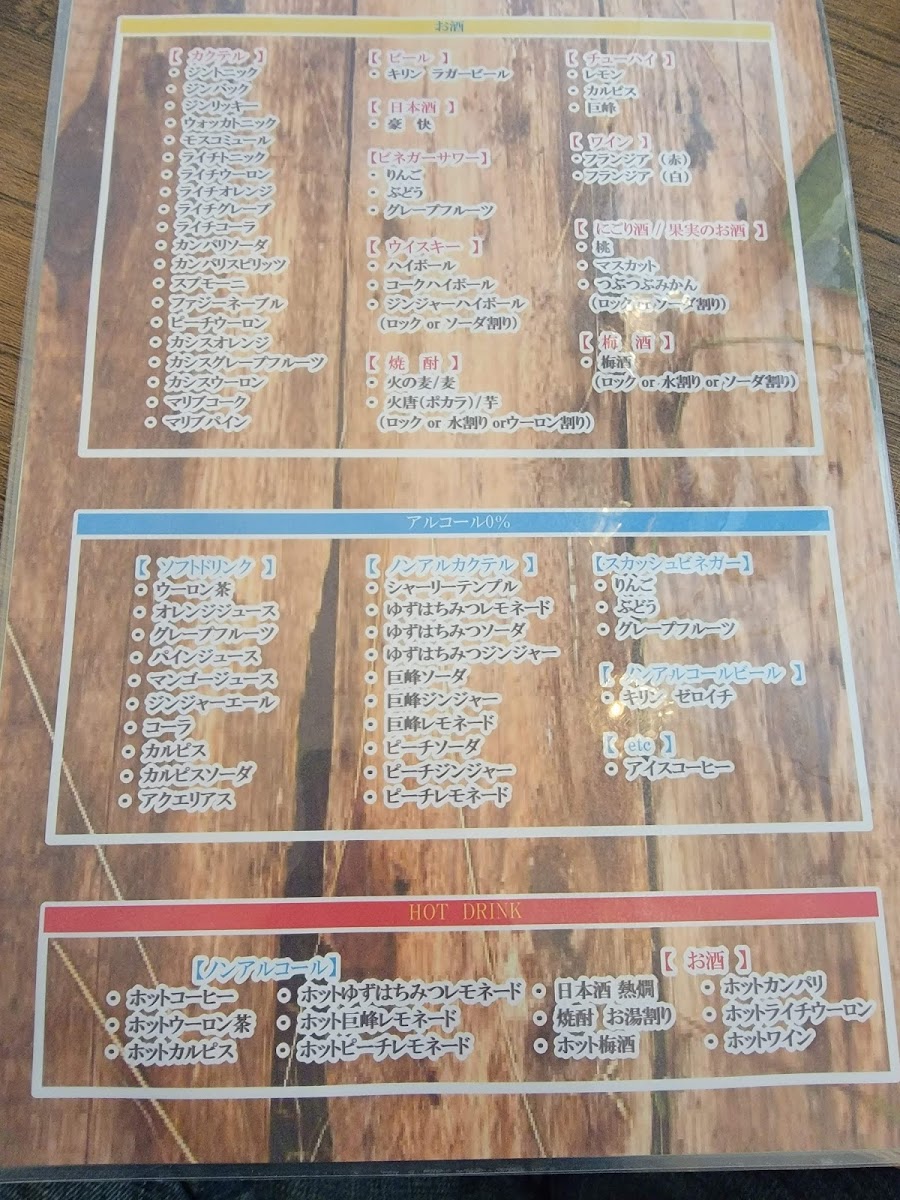 お酒
【 カクテル 】
・ ジントニック
・ ジンバック
・ ジンリッキー
・ ウォッカトニック
・ モスコミュール
・ ライチトニック
・ ライチウーロン
・ ライチオレンジ
・ ライチグレープ
・ ライチコーラ
・ カンパリソーダ
・ カンパリスピリッツ
・ スプモーニ
・ ファジーネーブル
・ ピーチウーロン
・ カシスオレンジ
・ カシスグレープフルーツ
・ カシスウーロン
・ マリブコーク
・ マリブパイン
【 ビール 】
・ キリン ラガービール
【 日本酒 】
・ 豪 快
【ビネガーサワー】
・ りんご
・ ぶどう
・ グレープフルーツ
【 ウイスキー 】
・ ハイボール
・ コークハイボール
・ ジンジャーハイボール
(ロック or ソーダ割り)
【 焼 酎 】
・ 火の麦/麦
・ 火唐(ポカラ)/芋
(ロック or 水割り orウーロン割り)
【 チューハイ 】
・ レモン
・ カルピス
・ 巨峰
【 ワイン 】
・フランジア (赤)
・フランジア (白)
【 にごり酒//果実のお酒 】
・ 桃
・ マスカット
・ つぶつぶみかん
(ロック or ソーダ割り)
【 梅 酒 】
・ 梅酒
(ロック or 水割り or ソーダ割り)
アルコール0%
【 ソフトドリンク 】
・ ウーロン茶
・ オレンジジュース
・ グレープフルーツ
・ パインジュース
・ マンゴージュース
・ ジンジャーエール
・ コーラ
・ カルピス
・ カルピスソーダ
・ アクエリアス
【 ノンアルカクテル 】
・ シャーリーテンプル
・ ゆずはちみつレモネード
・ ゆずはちみつソーダ
・ ゆずはちみつジンジャー
・ 巨峰ソーダ
・ 巨峰ジンジャー
・ 巨峰レモネード
・ ピーチソーダ
・ ピーチジンジャー
・ ピーチレモネード
【スカッシュビネガー】
・ りんご
・ ぶどう
・ グレープフルーツ
【 ノンアルコールビール 】
・ キリン ゼロイチ
【 etc 】
・ アイスコーヒー
HOT DRINK
【ノンアルコール】
・ ホットコーヒー
・ ホットウーロン茶
・ ホットカルピス
・ ホットゆずはちみつレモネード
・ ホット巨峰レモネード
・ ホットピーチレモネード
【 お酒 】
・ 日本酒 熱燗
・ 焼酎 お湯割り
・ ホット梅酒
・ ホットカンパリ
・ ホットライチウーロン
・ ホットワイン